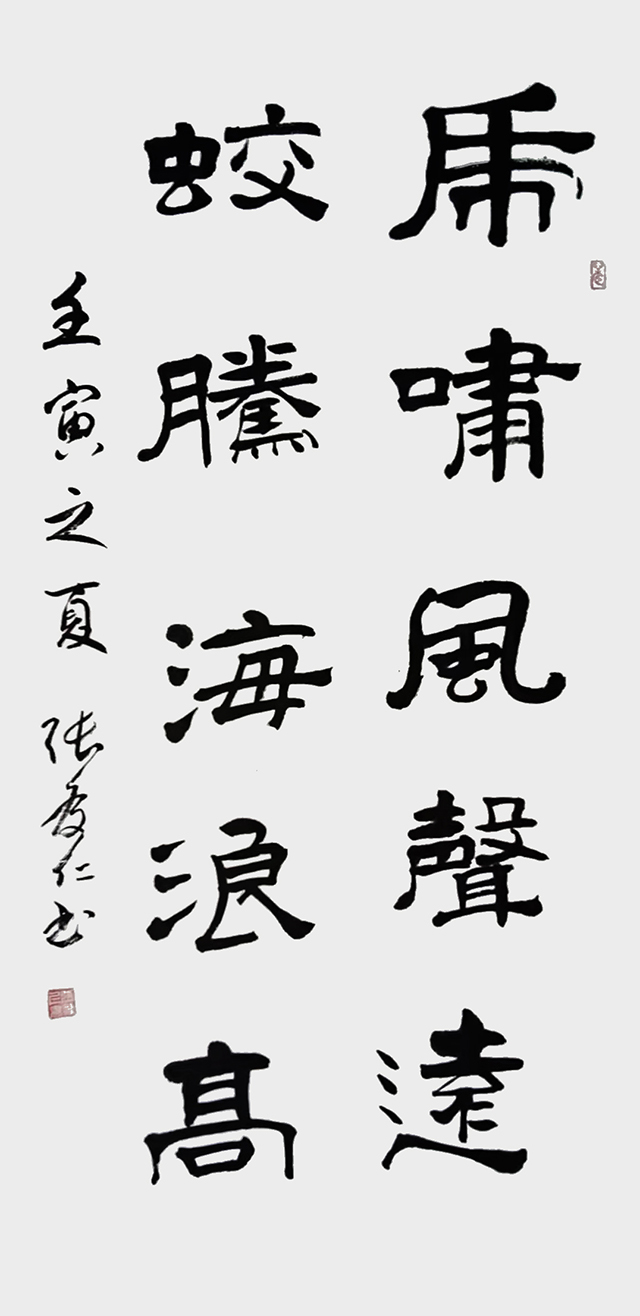 虎嘯風聲遠
蛟騰海浪高
壬寅之夏 张友仁书